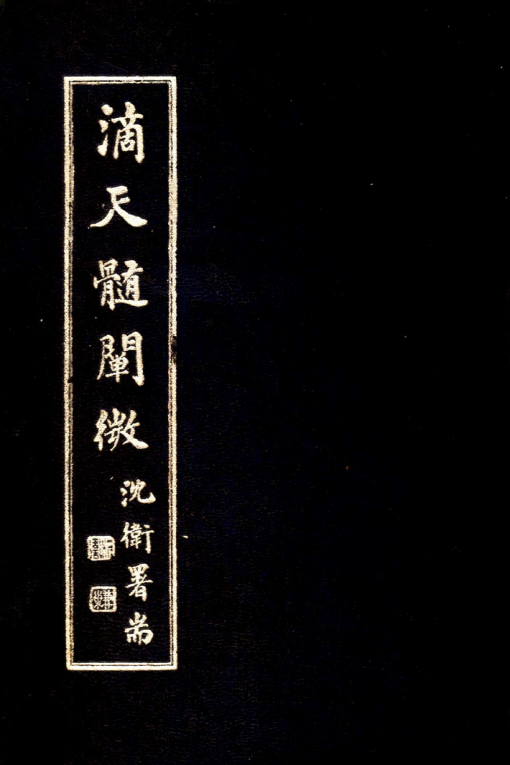 滴天髓闡微
沈衛署耑